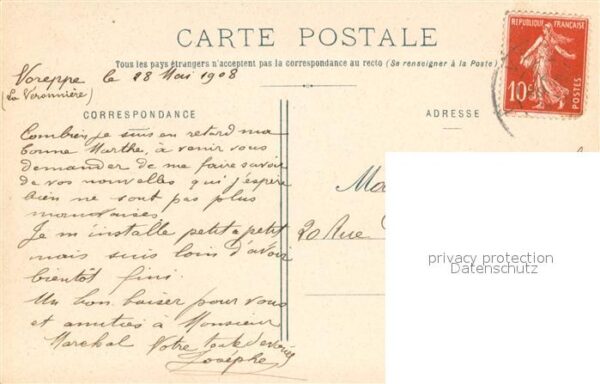 CARTE POSTALE
Tous les pays étrangers n'acceptent pas la correspondance au recto (Se renseigner à la Poste)
REPUBLIQUE FRANÇAISE
10c
POSTES
Voreppe le 28 Mai 1908
(La Veronnière)
CORRESPONDANCE
ADRESSE
Combien je suis en retard ma
bonne Marthe, à venir vous
demander de me faire savoir
de vos nouvelles qui j'espère
bien ne sont pas plus
mauvaises.
Je m'installe petit à petit
mais suis loin d'avoir
bientôt fini.
Un bon baiser pour vous
et amitiés à Monsieur
Marchal Votre toute dévouée
Josèphe
Ma
20 Rue
privacy protection
Datenschutz